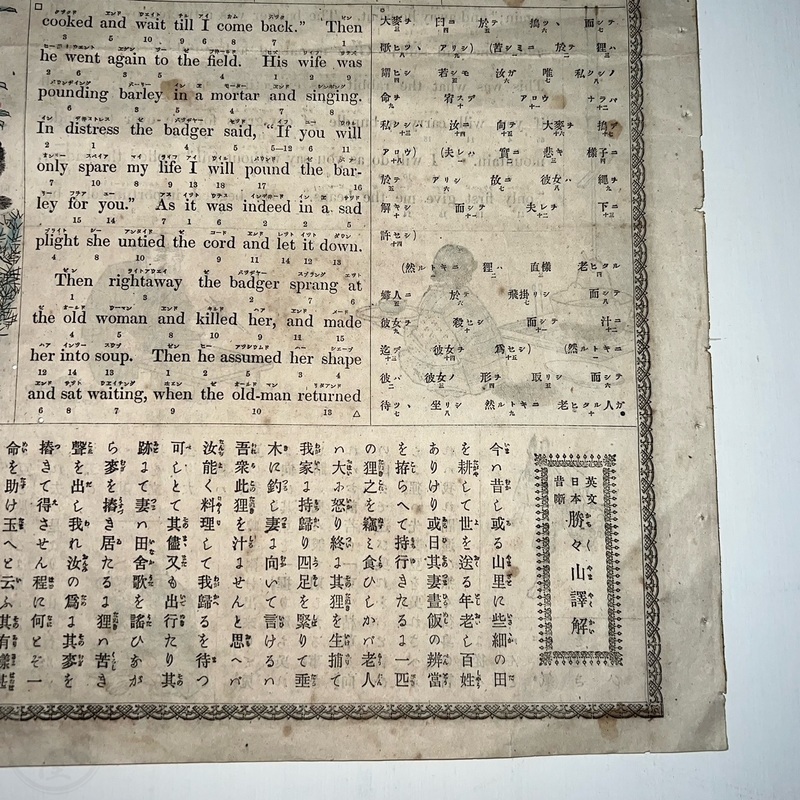 cooked and wait till I come back." Then
he went again to the field. His wife was
pounding barley in a mortar and singing.
In distress the badger said, "If you will
only spare my life I will pound the bar-
ley for you." As it was indeed in a sad
plight she untied the cord and let it down.
Then rightaway the badger sprang at
the old woman and killed her, and made
her into soup. Then he assumed her shape
and sat waiting, when the old-man returned
大麥ヲ 臼ニ 於テ 搗ツヽ 而シテ
歌ヒツヽ アリシ) (苦シミニ 於テ 狸ハ
謂ヒシ 若シモ 汝ガ 唯 私クシノ
命ヲ 宥スデ アロウ ナラバ
私クシハ 汝ニ 向テ 大麥ヲ 搗デ
アロウ) (夫レハ 實ニ 悲キ 樣子ニ
於テ アリシ 故ニ 彼女ハ 繩ヲ
解キシ 而シテ 夫レヲ 下ニ
許セシ)
(然ルトキニ 狸ハ 直樣 老ヒタル
婦人ニ 於テ 飛掛リシ 而シテ
彼女ヲ 殺ヒシ 而シテ 汁ニ
迄デ 彼女ヲ 爲セシ) (然ルトキニ
彼ハ 彼女ノ 形ヲ 取リシ 而シテ
待ツヽ 坐リシ 然ルトキニ 老ヒタル人ガ
英文
日本
昔噺
勝々山譯解
今ハ昔し或る山里に些細の田
を耕して世を送る年老し百姓
ありけり或日其妻晝飯の辨當
を拵らへて持行きたるよ一匹
の狸之を竊ミ食ひしかバ老人
ハ大よ怒り終よ其狸を生捕て
我家よ持歸り四足を緊りて垂
木に釣し妻よ向いて言けるハ
吾衆此狸を汁よせんと思へバ
汝能く料理して我歸るを待つ
可しとて其儘又も出行たり其
跡よて妻ハ田舍歌を謠ひるが
ら麥を搗き居たるよ狸ハ苦き
聲を出し我れ汝の爲よ其麥を
搗きて得させん程に何とぞ一
命を助け玉へと云ふ其有樣甚